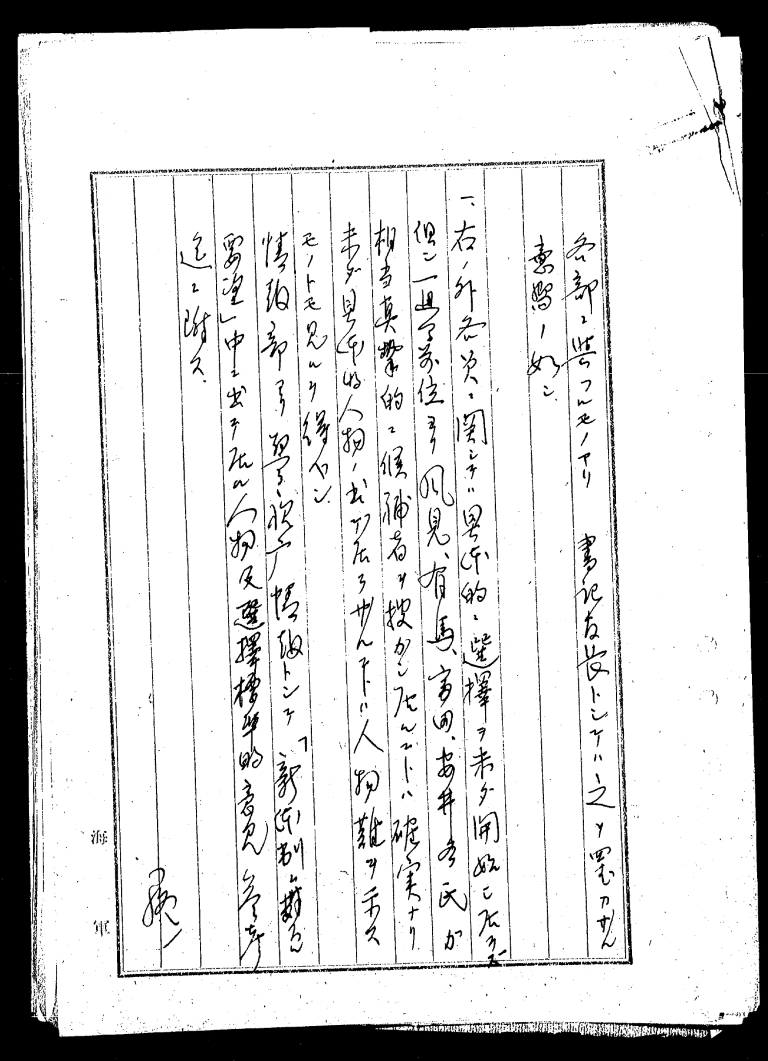 各部ニ与フルモノアリ 書記官長トシテハ之ヲ置カザル
意嚮ノ如シ
一、右ノ外各員ニ関シテハ具体的ニ選擇ヲ未ダ開始シ居ラズ
但シ一週間前位ヨリ風見、有馬、富田、安井各氏ガ
相当真摯的ニ候補者ヲ捜カシ居ルコトハ確実ナリ
未ダ具体的人物ノ出デ居ラザルコトハ人物難ヲ示ス
モノトモ見ルヲ得ベシ
情報部ヨリ 情報トシテ「新体制ニ対スル
要望」中ニ出デ居ル人物及選擇標準的意見参考
迄ニ附ス
海軍